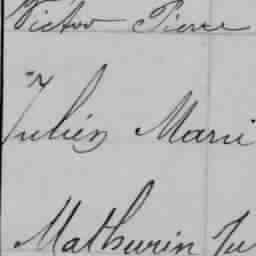 Victor Pierre
Julien Marie
Mathurin Ju